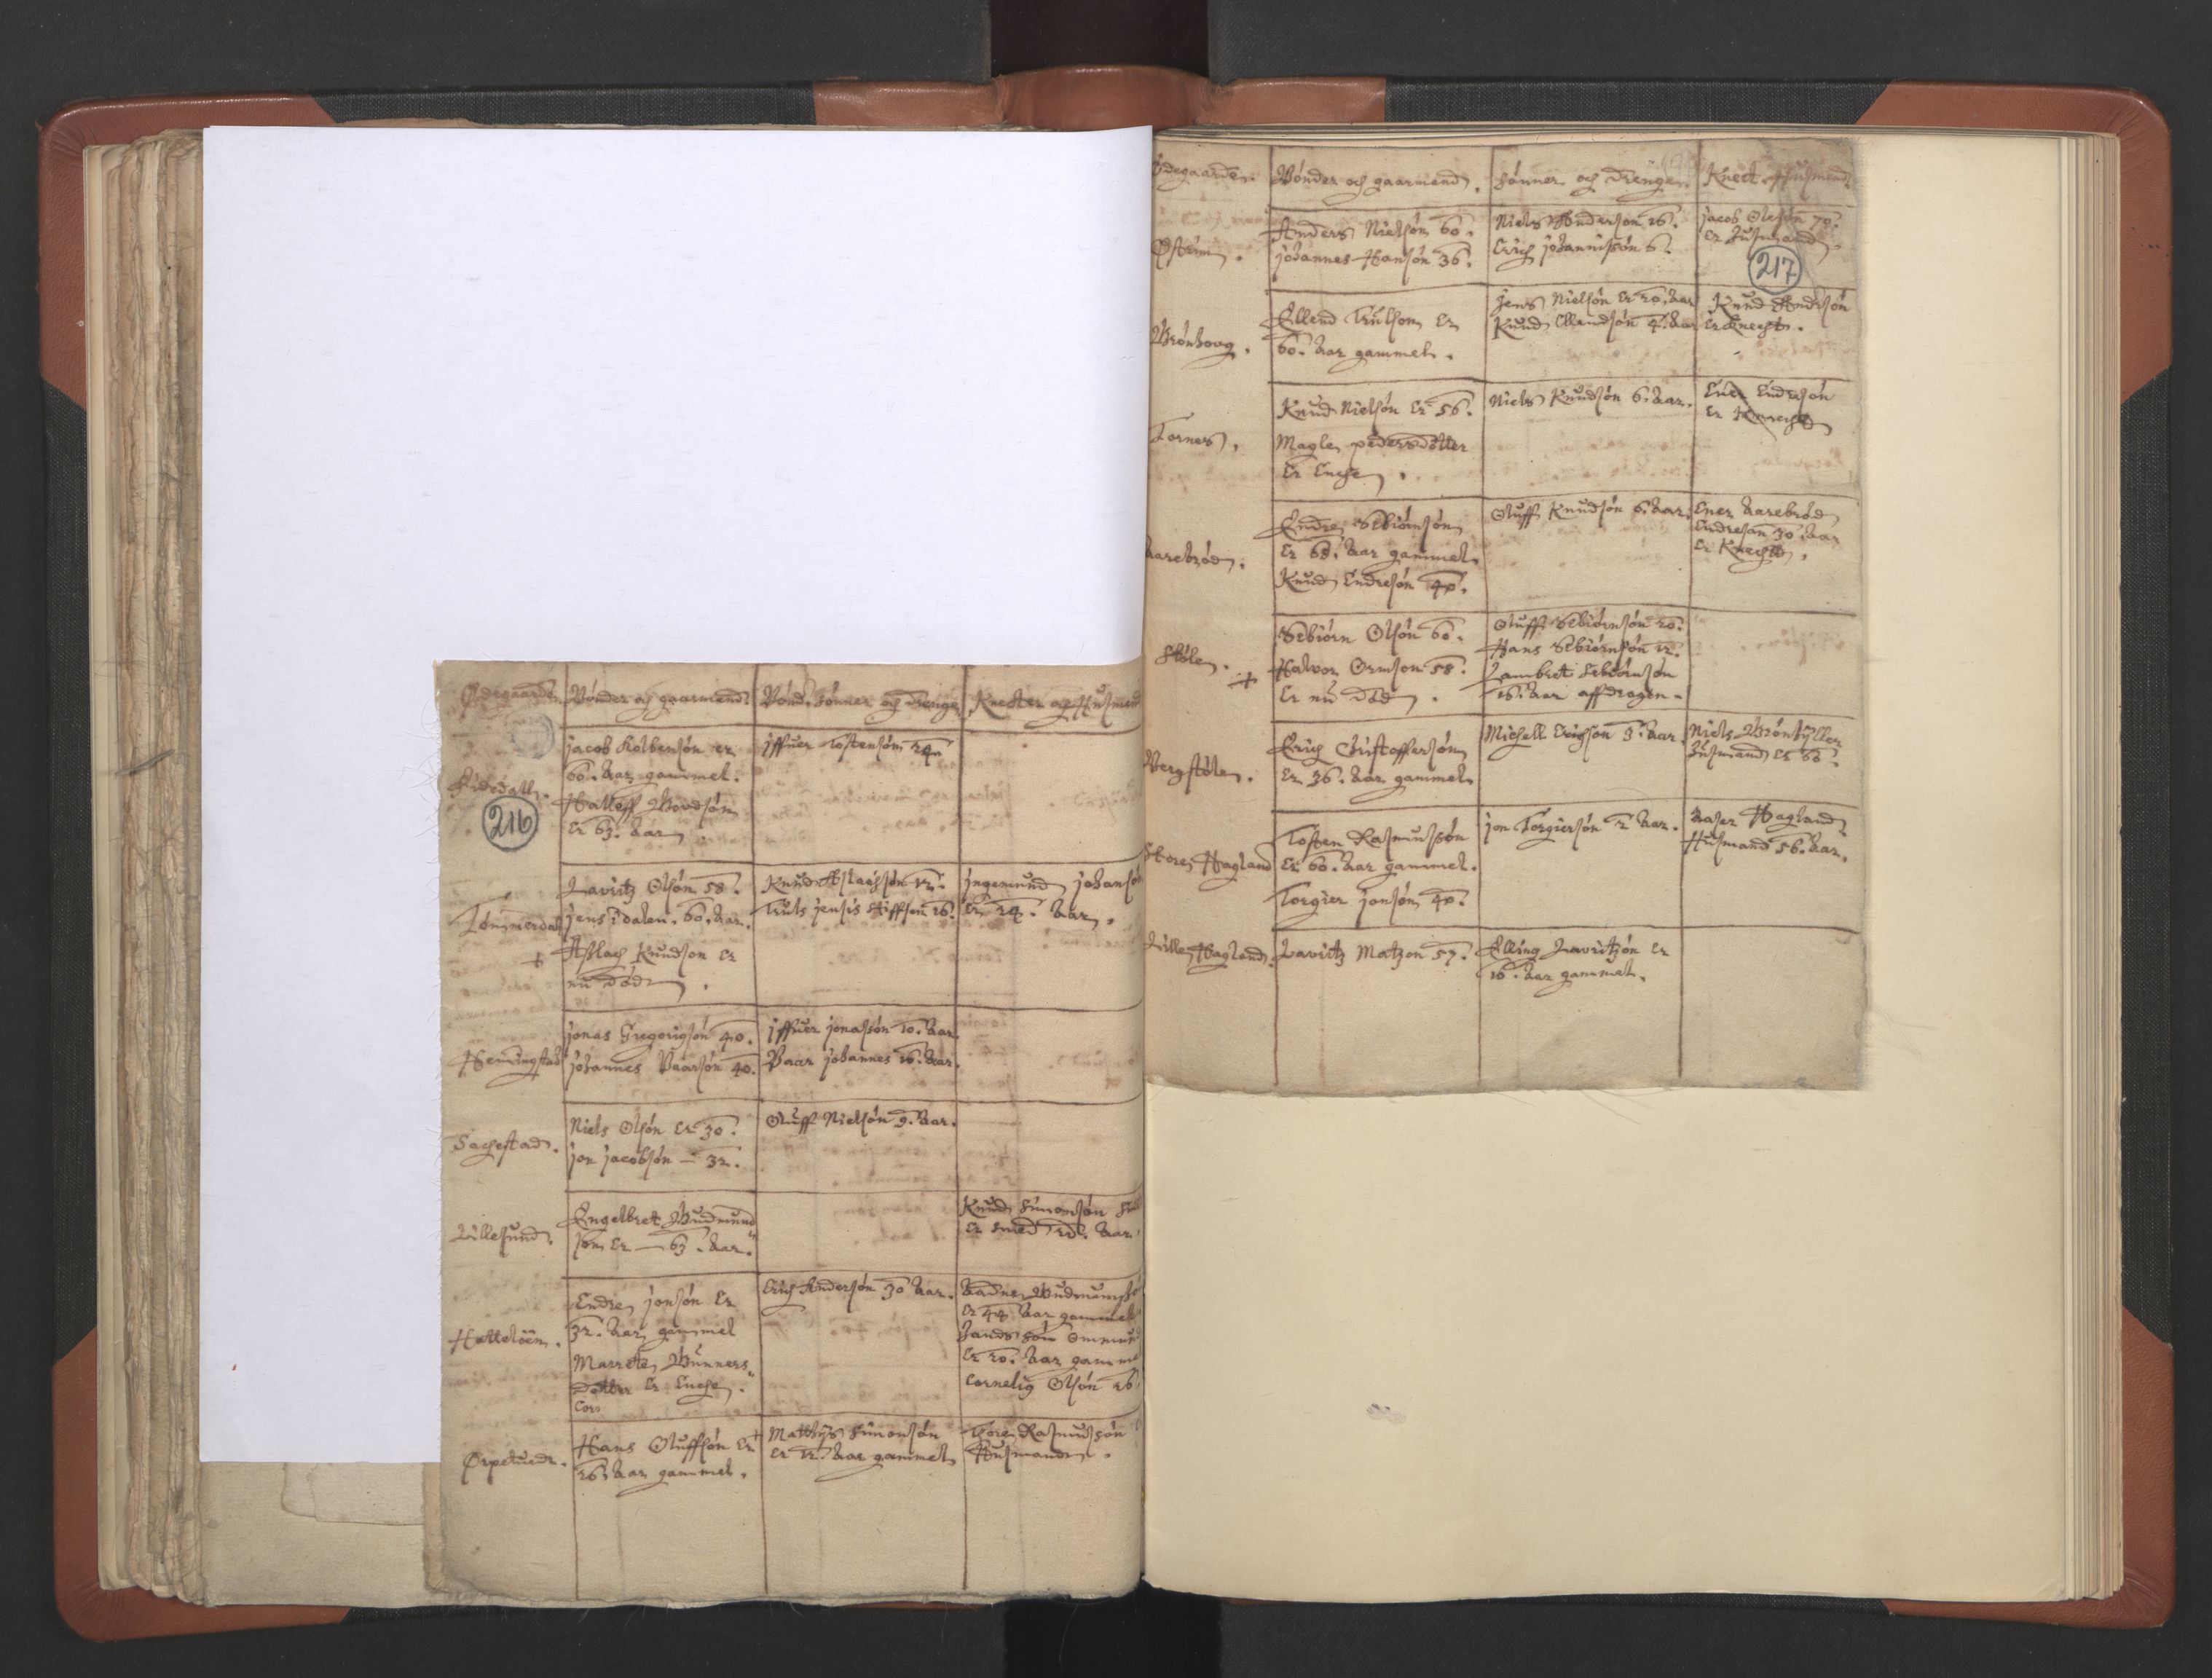 Ødegaarder. Bønder og gaarmend. Bønd. sønner og Drenge Knecter og Husmend
jacob Kolbensøn er
60. Aar gammel.
Halleff Bordsøn
er 63. Aar
jffuer Tostensøn 24
216
Tømmerdal
Lavritz Olsøn 58.
jens i dalen. 60. Aar.
+ Asslach Knudsøn er
nu død.
Knud Aslachsøn 12.
Truls jensis Stiffsøn 16.
jngemund johansø
er 24. Aar.
Hemingstad
jonas Gregorigsøn 40.
johannes Baarsøn 40.
jffuer jonasøn 10. Aar.
Baar johannes 16. Aar.
Sachestad.
Niels Olsøn er 30.
jon jacobsøn — 32.
Oluff Nielsøn 9. Aar.
Lillesund.
Engelbret Gudmund
søn er — 63. Aar.
Knud Simonsøn
er smed 20. Aar
Hatteløen.
Endre jonsøn er
32. Aar gammel
Marrete Gunners
dotter er Encke.
Cor
Erich Andersøn 30 Aar.
Aadne Gudmunsø
er 44. Aar gammel
hands søn Ommund
er 20. Aar gamme
Cornelig Olsøn 26
Ørpetuedt.
Hans Oluffsøn er +
26. Aar gammel.
Matthijs Simonsøn
er 12. Aar gammel
Tore Rasmusøn
Husmand.
Ødegaarder. Bønder og gaarmend. Sønner og Drenge. Knect. Husmend
Østrim.
Anders Nielsøn 60.
johannes Hansøn 36.
Niels Andersøn 16.
Erich johannissøn 6.
jacob Olsøn 70.
er Husmand.
217
Brønhoug.
Ellend Trulsøn er
60. Aar gammel.
jens Nielsøn er 20. Aar
Knud Ellendsøn 4. Aar
Knud Andersøn
er Knecht.
Tornes.
Knud Nielsøn er 56.
Magle pedersdotter
er Encke.
Niels Knudsøn 6. Aar.
Endresøn
er Knecht
Aarebrød.
Endre Sebiørnsøn
er 68. Aar gammel
Knud Endresøn 40.
Oluff Knudsøn 6. Aar.
Ener Aarebrød
Endresøn 30. Aar
er Knecht.
Støle.
Sebiørn Olsøn 60.
+ Halvor Ormsøn 58.
er nu død.
Oluff Sebiørnsøn 20.
Hans Sebiørnsøn 12.
Lambret Sebiørnsøn
16. Aar affdragen
Bergstølen.
Erich Christoffersøn
er 36. Aar gammel
Michell Erichsøn 3. Aar.
Niels Brøntyllen
Husmand er 66.
Store Hagland
Tosten Rasmusøn
er 60. Aar gammel.
Torgier jonsøn 40.
jon Torgiersøn 2 Aar.
Aaser Hagland
Husmand 56. Aar.
Lille Hagland.
Lavritz Matzøn 57.
Elling Lavritzøn er
10. Aar gammel.